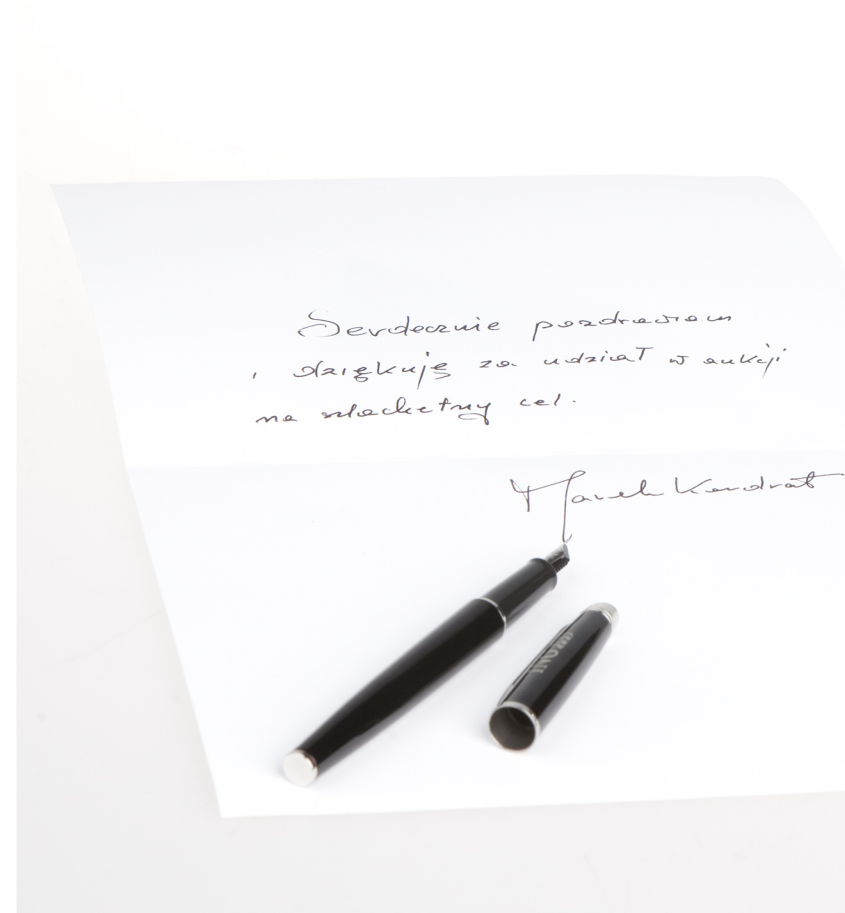 Serdecznie pozdrawiam
i dziękuję za udział w aukcji
na szlachetny cel.
Marek Kondrat
ING